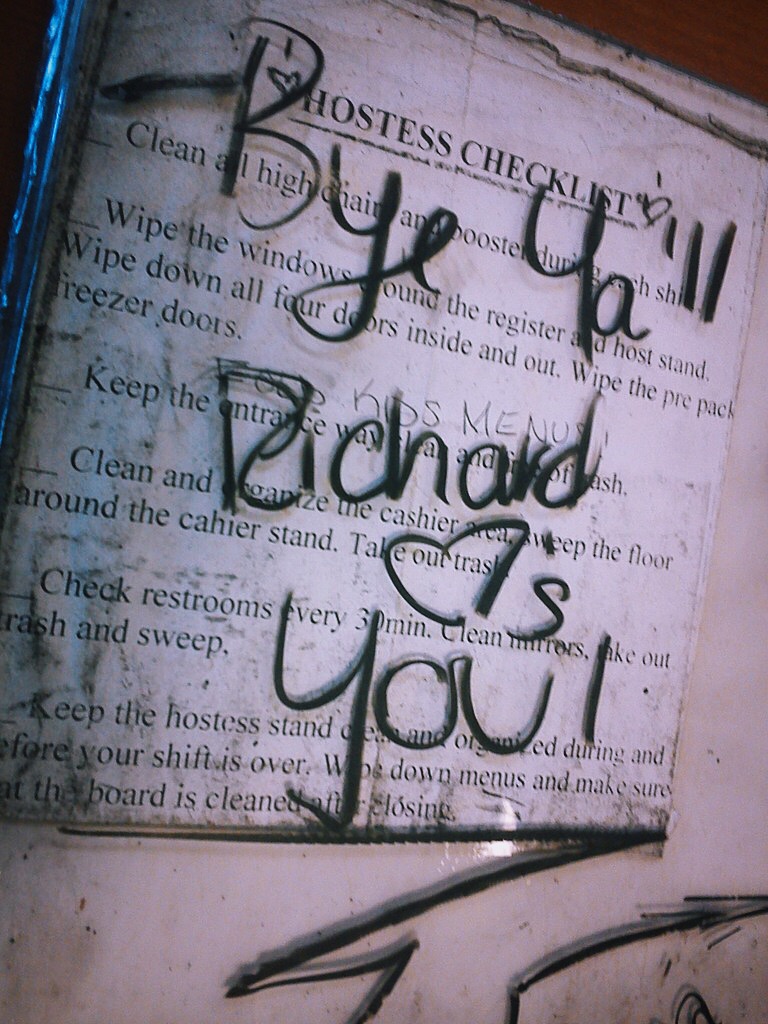 HOSTESS CHECKLIST
Clean all high chairs and booster during each shift.
Wipe the windows around the register and host stand.
Wipe down all four doors inside and out. Wipe the pre pack
freezer doors.
FOLD KIDS MENUS!
Keep the entrance way clear and free of trash.
Clean and organize the cashier area, sweep the floor
around the cahier stand. Take out trash.
Check restrooms every 30min. Clean mirrors, take out
trash and sweep.
Keep the hostess stand clean and organized during and
before your shift is over. Wipe down menus and make sure
at the board is cleaned after closing.
Bye Ya'll
Richard
♡'s
You!